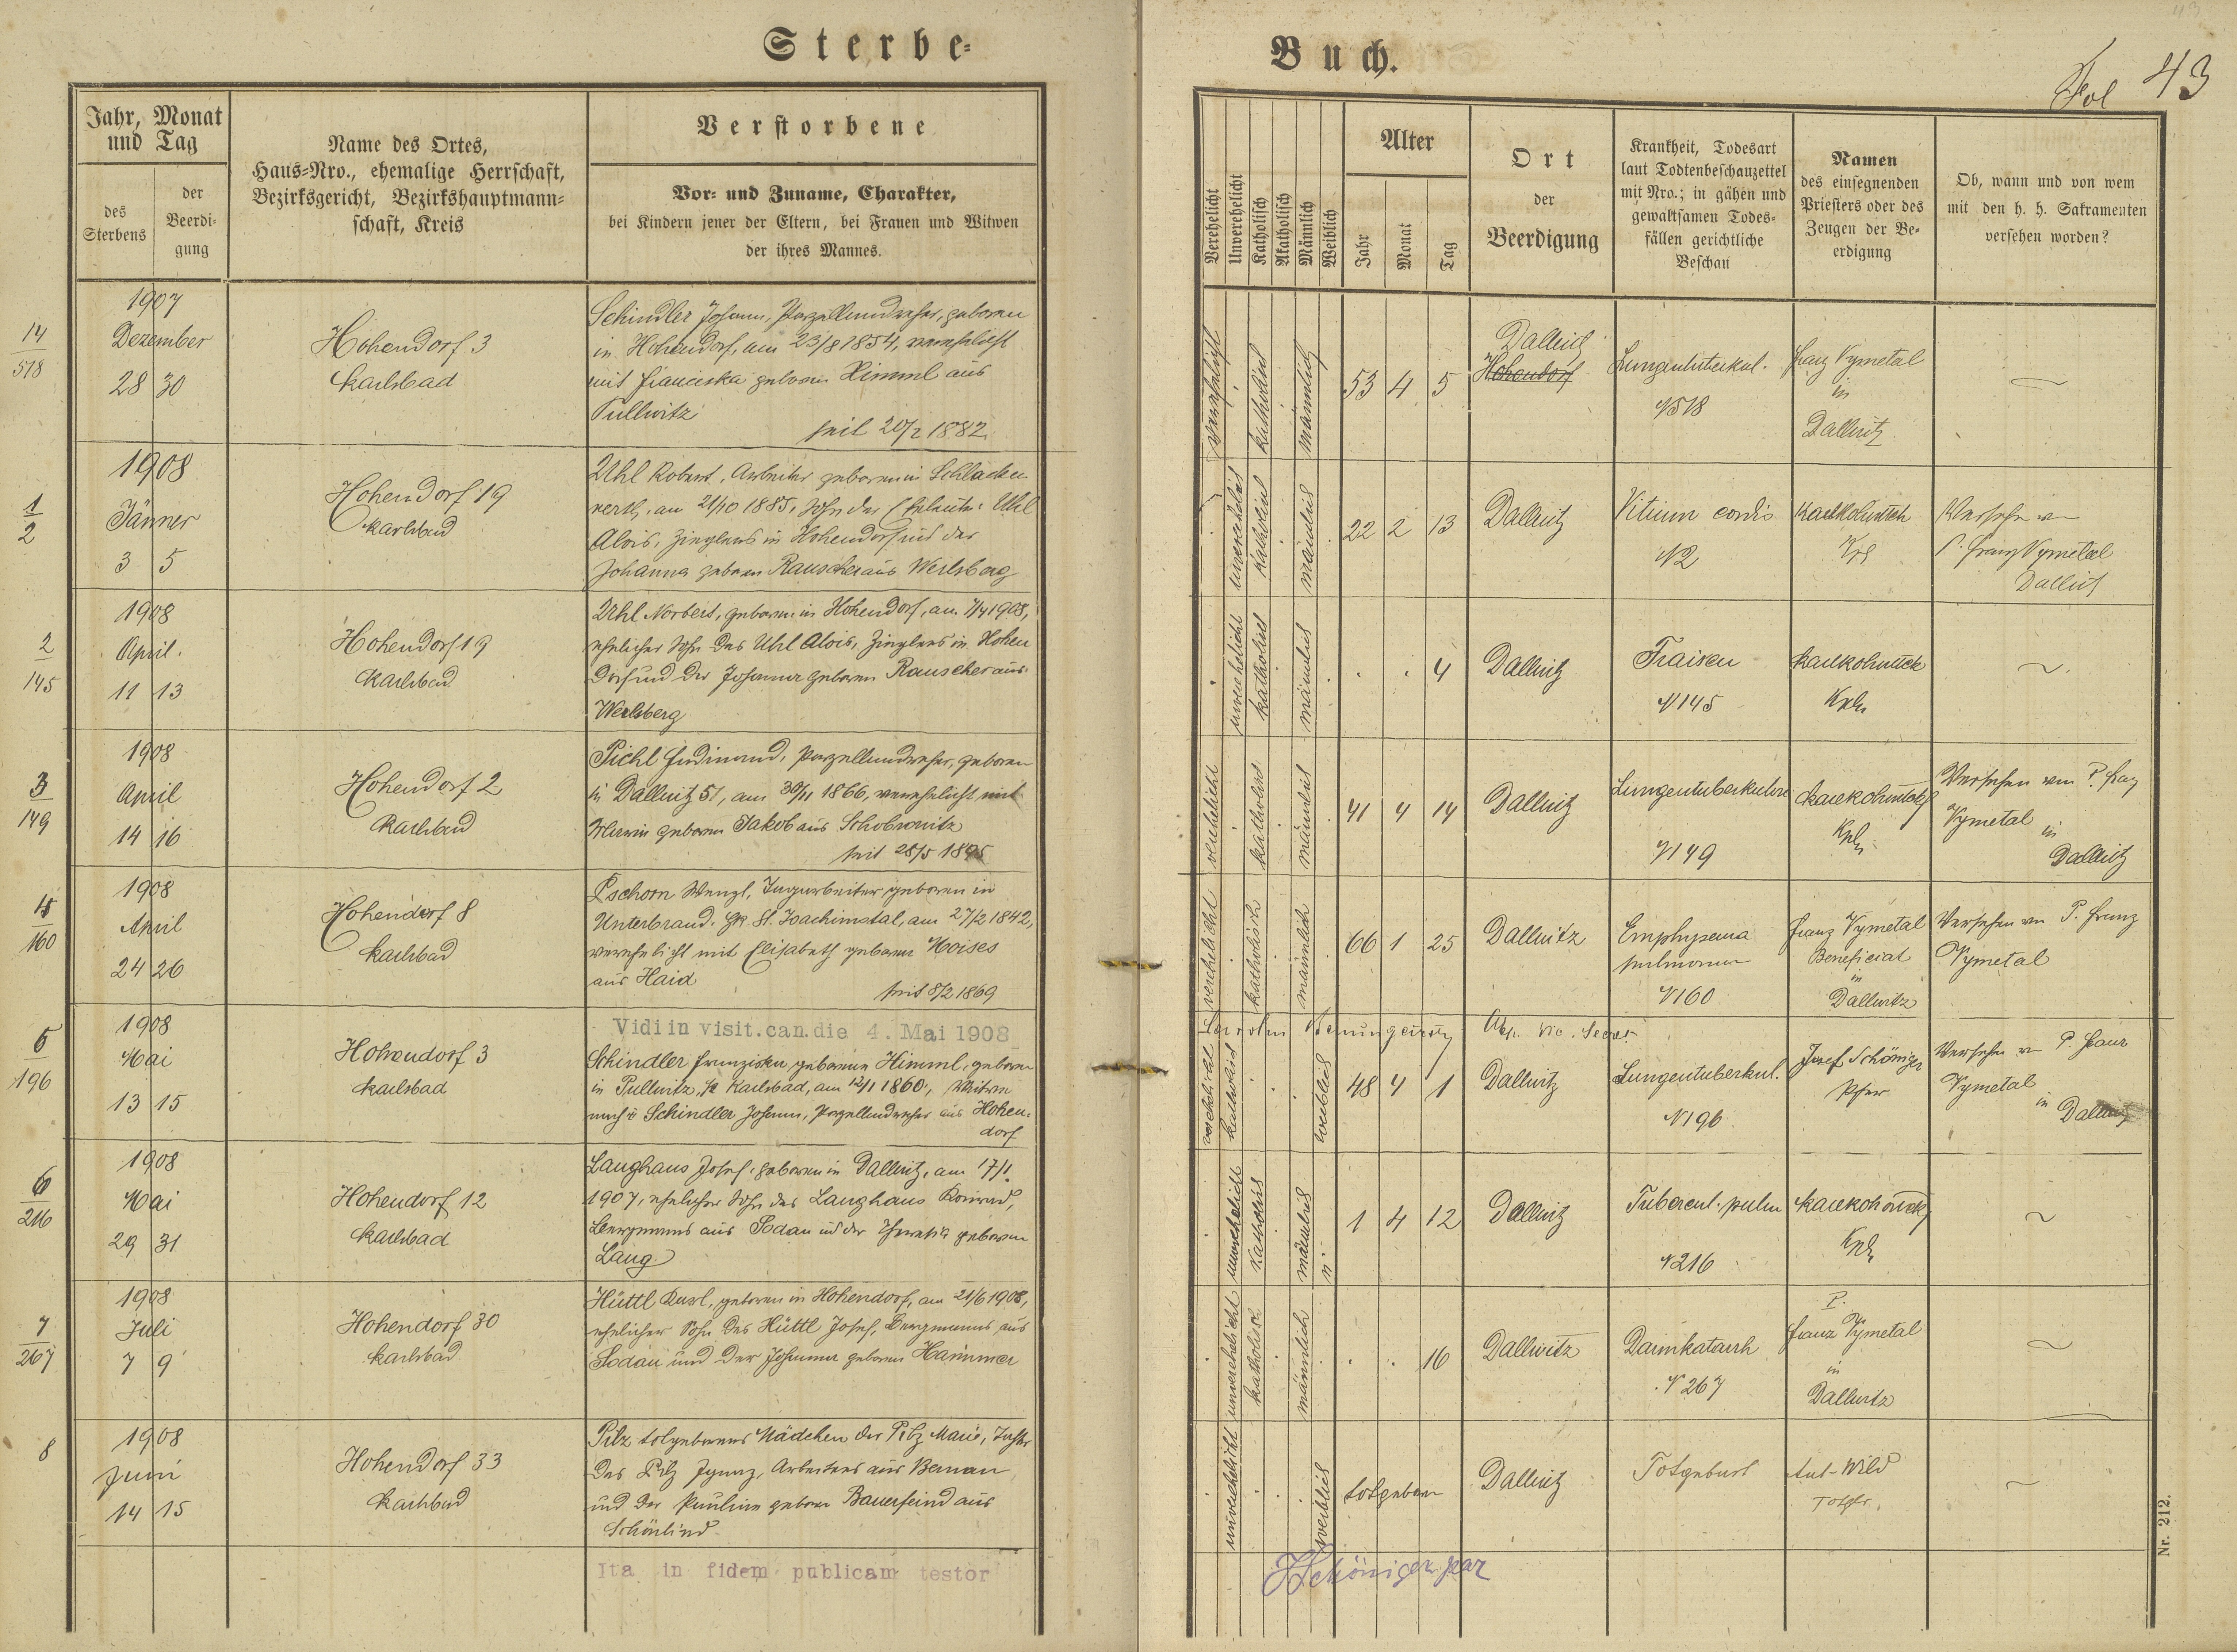 Sterbe-
Jahr, Monat
und Tag
des
Sterbens
der
Beerdi-
gung
Name des Ortes,
Haus-Nro., ehemalige Herrschaft,
Bezirksgericht, Bezirkshauptmann-
schaft, Kreis
Verstorbene
Vor- und Zuname, Charakter,
bei Kindern jener der Eltern, bei Frauen und Witwen
der ihres Mannes.
14
518
1907
Dezember
28 30
Hohendorf 3
Karlsbad
Schindler Johann, Porzellandreher, geboren
in Hohendorf, am 23/8 1854, verehelicht
mit Franciska geboren Himml aus
Pullwitz
seit 20/2 1882.
1
2
1908
Jänner
3 5
Hohendorf 19
Karlsbad
Uhl Robert, Arbeiter geboren in Schlacken
werth, am 21/10 1885, Sohn der Eheleute: Uhl
Alois, Zieglers in Hohendorf und der
Johanna geboren Rauscher aus Werlsberg
2
145
1908
April.
11 13
Hohendorf 19
Karlsbad
Uhl Norbert, geboren in Hohendorf, am 7/4 1908,
ehelicher Sohn des Uhl Alois, Zieglers in Hohen
dorf und der Johanna geboren Rauscher aus
Werlsberg
3
149
1908
April
14 16
Hohendorf 2
Karlsbad
Pichl Ferdinand, Porzellandreher, geboren
in Dallwitz 51, am 30/11 1866, verehelicht mit
Maria geboren Jakob aus Schobrowitz
seit 28/5 1895
4
160
1908
April
24 26
Hohendorf 8
Karlsbad
Pschorn Wenzl, Tagarbeiter geboren in
Unterbrand. Gk St. Joachimstal, am 27/2 1842,
verehelicht mit Elisabeth geboren Moises
aus Haid
seit 8/2 1869
5
196
1908
Mai
13 15
Hohendorf 3
Karlsbad
Vidi in visit. can. die 4. Mai 1908
Schindler Franziska geborene Himml, geboren
in Pullwitz, Karlsbad, am 12/1 1860, Witwe
nach Schindler Johann, Porzellandreher aus Hohen-
dorf
6
216
1908
Mai
29 31
Hohendorf 12
Karlsbad
Langhans Josef, geboren in Dallwitz, am 17/1.
1907, ehelicher Sohn des Langhans Konrad,
Bergmanns aus Sodau und der Theresia geboren
Lang
7
267
1908
Juli
7 9
Hohendorf 30
Karlsbad
Hüttl Karl, geboren in Hohendorf, am 21/6 1908,
ehelicher Sohn des Hüttl Josef, Bergmanns aus
Sodau und der Johanna geboren Hammer
8
1908
Juni
14 15
Hohendorf 33
Karlsbad
Pilz totgeborenes Mädchen der Pilz Marie, Tochter
des Pilz Ignaz, Arbeiters aus Bernau
und der Pauline geboren Bauerfeind aus
Schönlind
Ita in fidem publicam testor
Buch.
Fol 43
Verehelicht
Unverehelicht
Katholisch
Akatholisch
Männlich
Weiblich
Alter
Jahr
Monat
Tag
Ort
der
Beerdigung
Krankheit, Todesart
laut Todtenbeschauzettel
mit Nro.; in gähen und
gewaltsamen Todes-
fällen gerichtliche
Beschau
Namen
des einsegnenden
Priesters oder des
Zeugen der Be-
erdigung
Ob, wann und von wem
mit den h. h. Sakramenten
versehen worden?
verehelicht
katholisch
männlich
53 4 5
Dallwitz
Hohendorf
Lungentuberkul.
N 518
Franz Vymetal
in
Dallwitz
unverehelicht
katholisch
männlich
22 2 13
Dallwitz
Vitium cordis
N 2
Versehen von
P. Franz Vymetal
Dallwitz
unverehelicht
katholisch
männlich
4
Dallwitz
Fraisen
N 145
Kpln
verehelicht
katholisch
männlich
41 4 14
Dallwitz
Lungentuberkulose
N 149
Kpln
Versehen von P. Franz
Vymetal
in
Dallwitz
verehelicht
katholisch
männlich
66 1 25
Dallwitz
Emphysema
pulmonum
N 160
Franz Vymetal
Beneficiat
in
Dallwitz
Versehen von P. Franz
Vymetal
verehelicht
katholisch
weiblich
48 4 1
Dallwitz
Lungentuberkul.
N 196
Josef Schöniger
Pfar
Versehen von P. Franz
Vymetal
in Dallwitz
unverehelicht
katholisch
männlich
1 4 12
Dallwitz
Tubercul. pulm
N 216
Kpln
unverehelicht
katholisch
männlich
16
Dallwitz
Darmkatarrh
N 267
P.
Franz Vymetal
in
Dallwitz
unverehelicht
weiblich
totgeboren
Dallwitz
Totgeburt
Ant. Wild
Totgr.
JSchöniger par
Nr. 212.